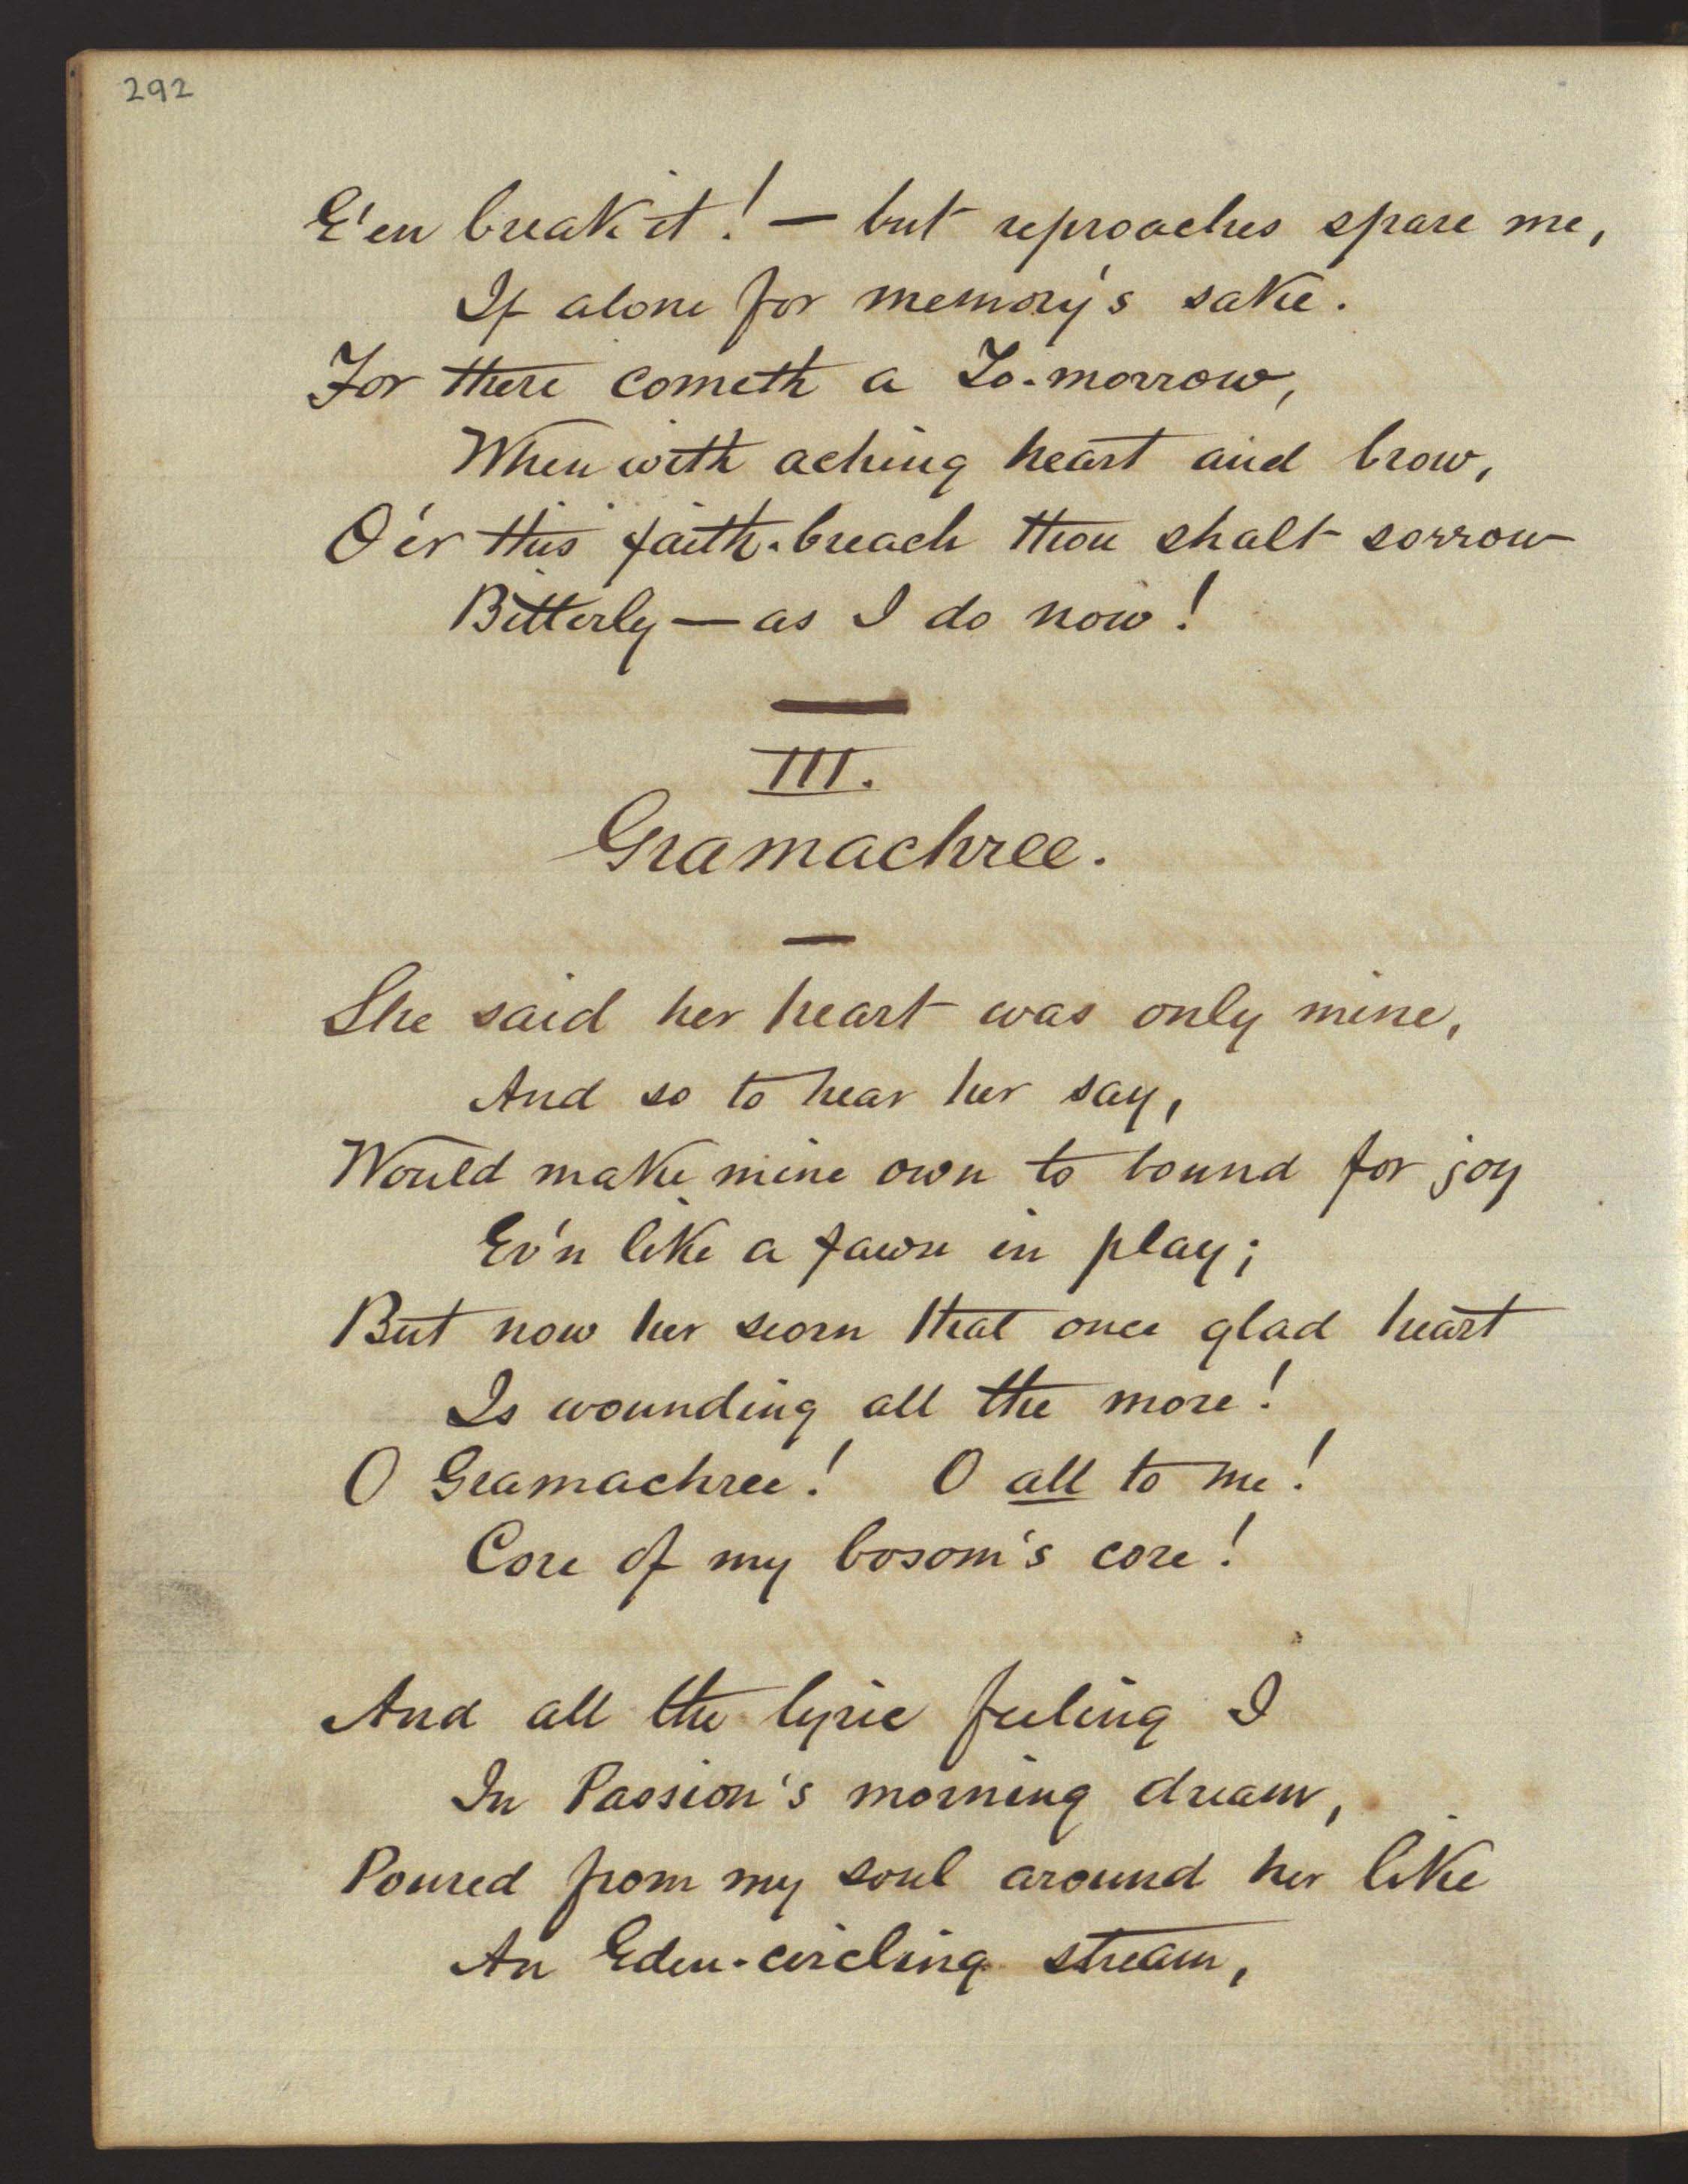 292
E'en break it! — but reproaches spare me,
If alone for memory's sake.
For there cometh a To-morrow,
When with aching heart and brow,
O'er this faith-breach thou shalt sorrow
Bitterly — as I do now!
III.
Gramachree.
She said her heart was only mine,
And so to hear her say,
Would make mine own to bound for joy
Ev'n like a fawn in play;
But now her scorn that once glad heart
Is wounding all the more!
O Gramachree! O all to me!
Core of my bosom's core!
And all the lyric feeling I
In Passion's morning dream,
Poured from my soul around her like
An Eden-circling stream,